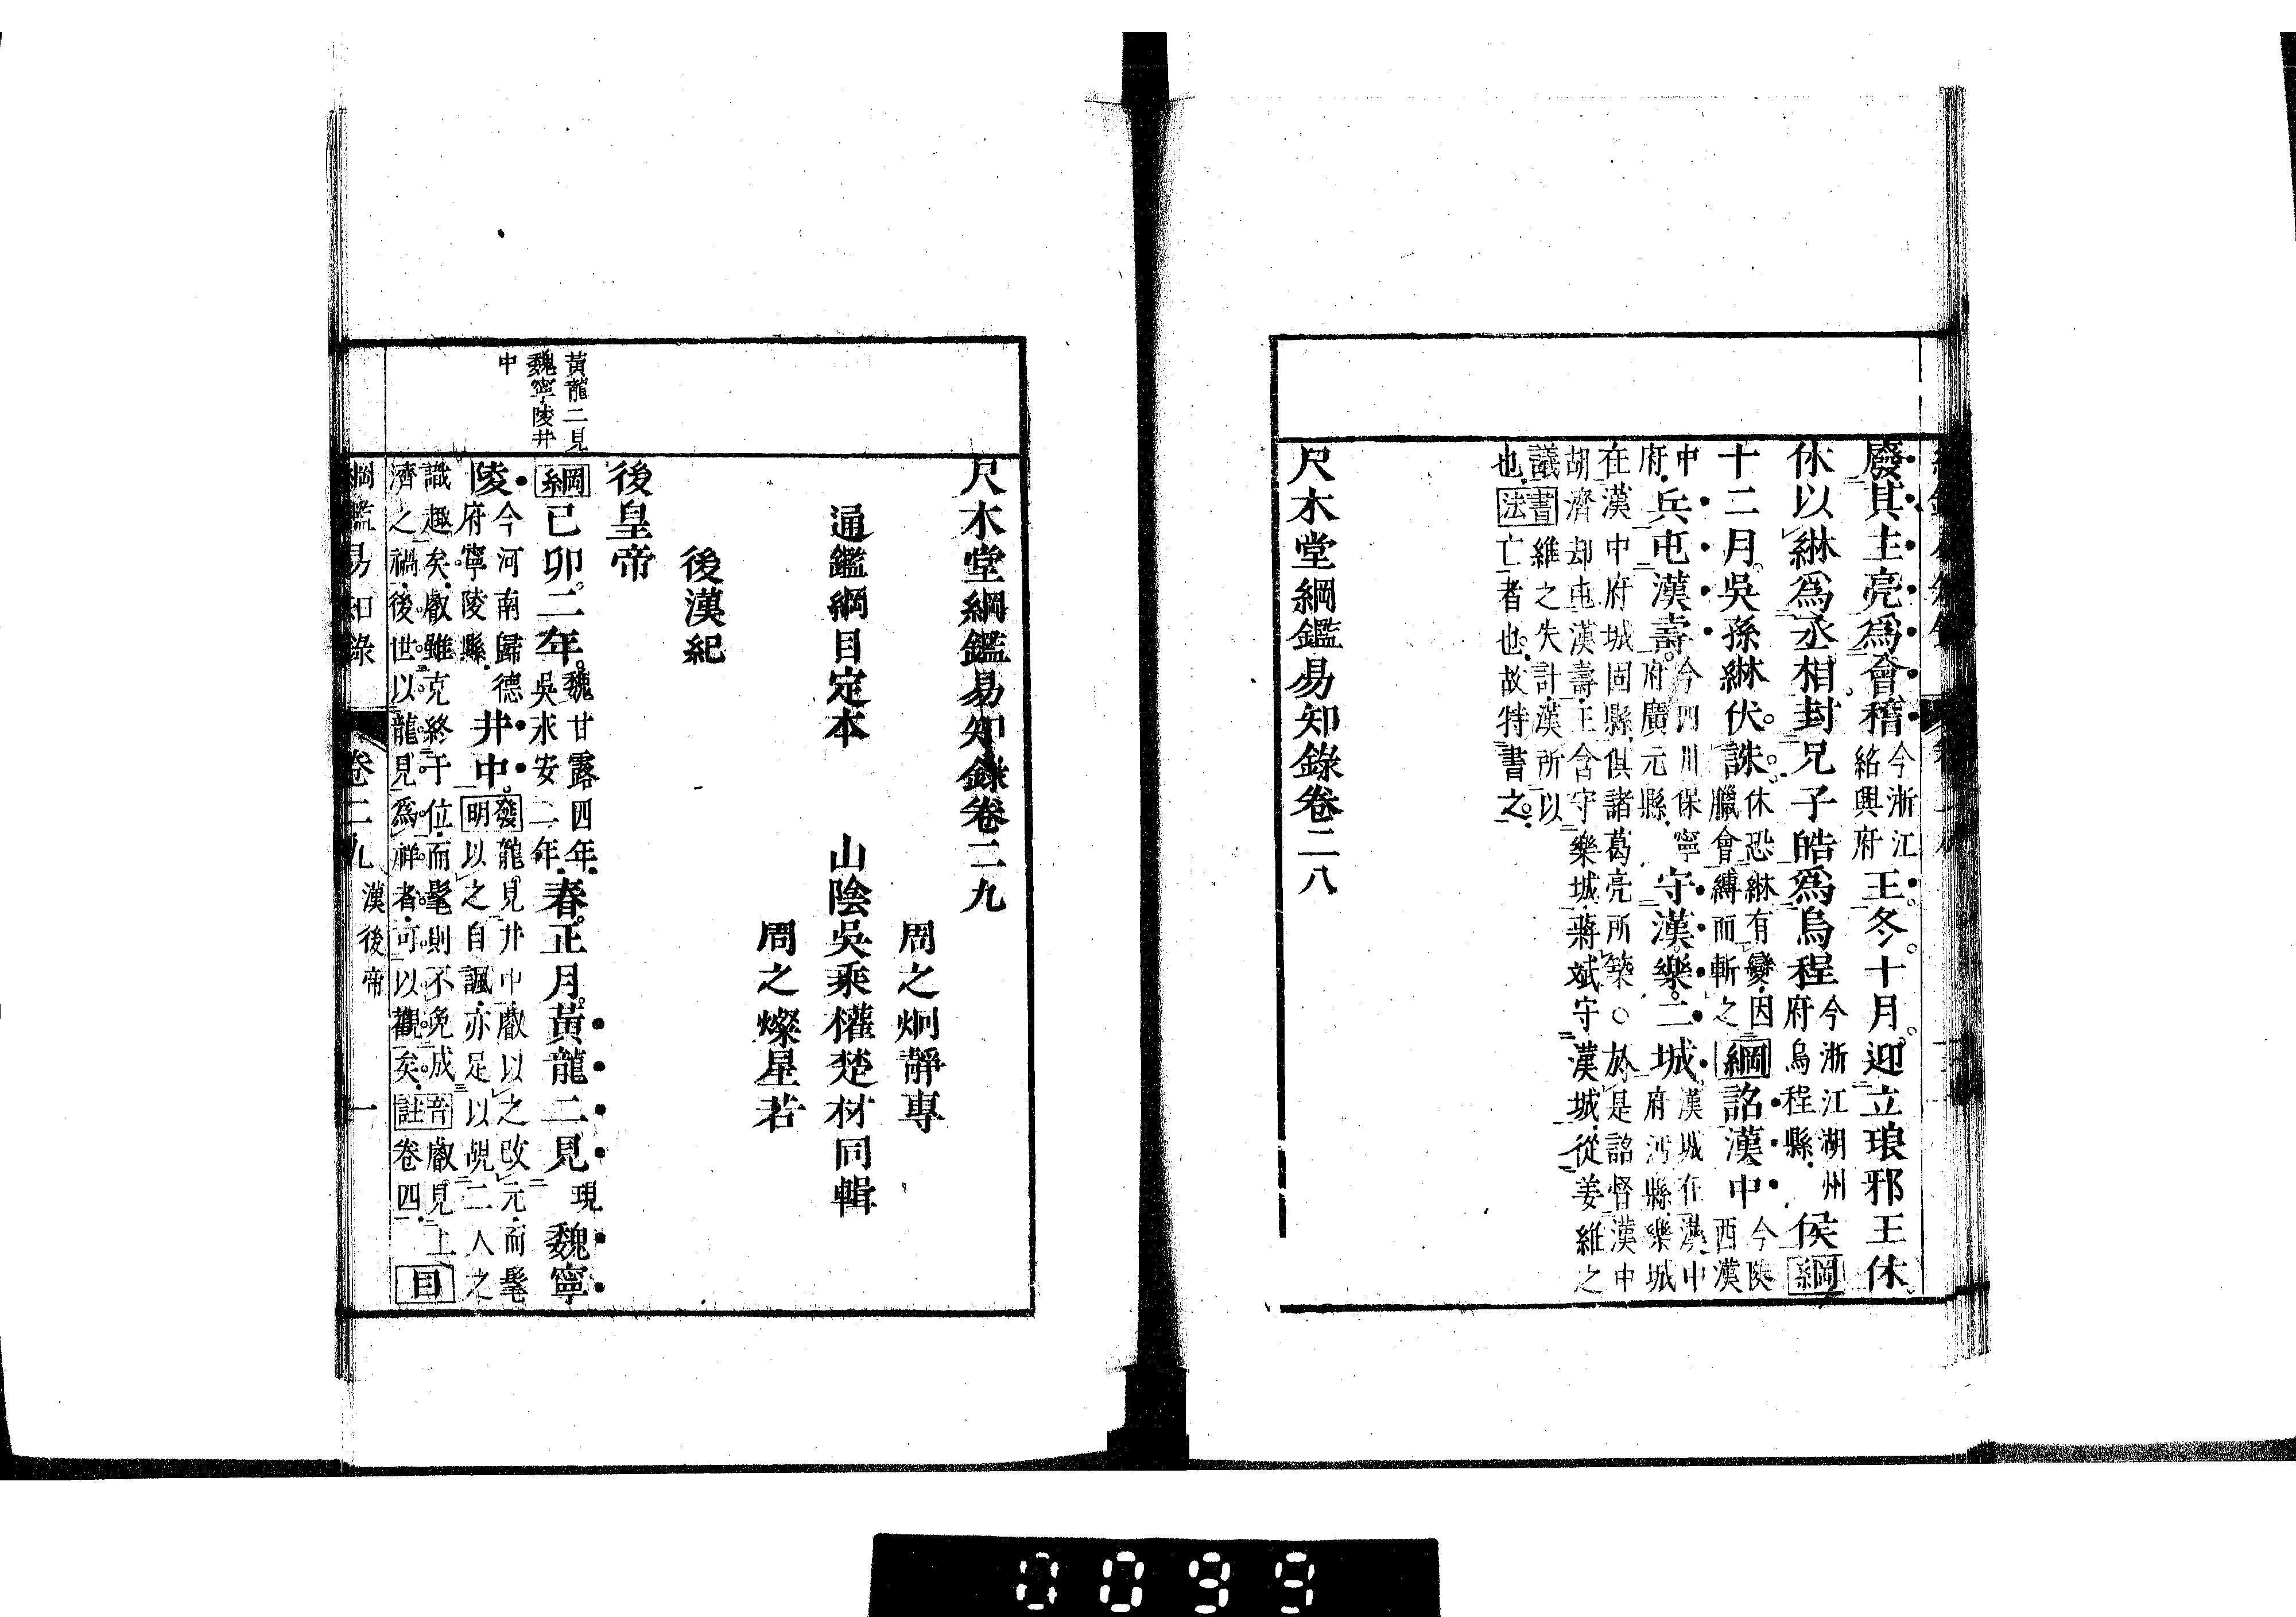 廢其主亮爲會稽今浙江紹興府王冬十月迎立琅邪王休
休以綝爲丞相封兄子皓爲烏程今浙江湖州府烏程縣侯綱
十二月吳孫綝伏誅休恐綝有變因臘會縛而斬之綱詔漢中今陝西漢
中府兵屯漢壽今四川保寧府廣元縣守漢樂二城漢城在漢中府沔縣樂城
在漢中府城固縣俱諸葛亮所築○於是詔督漢中
胡濟却屯漢壽王含守樂城蔣斌守漢城從姜維之
議書維之失計漢所以
也法亡者也故特書之
尺木堂綱鑑易知錄卷二八
尺木堂綱鑑易知錄卷二九
周之炯靜專
通鑑綱目定本 山陰吳乘權楚材同輯
周之燦星若
後漢紀
後皇帝
黃龍二見
魏寧陵井
中
綱己卯二年魏甘露四年吳永安二年春正月黃龍二見現魏寧
陵今河南歸德府寧陵縣井中發明龍見井中叡以之改元而髦以之自諷亦足以覘二人之
識趣矣叡雖克終于位而髦則不免成
濟之禍後世以龍見爲祥者可以觀矣音註叡見上卷四目
綱鑑易知錄 卷二九 漢後帝 一
0099